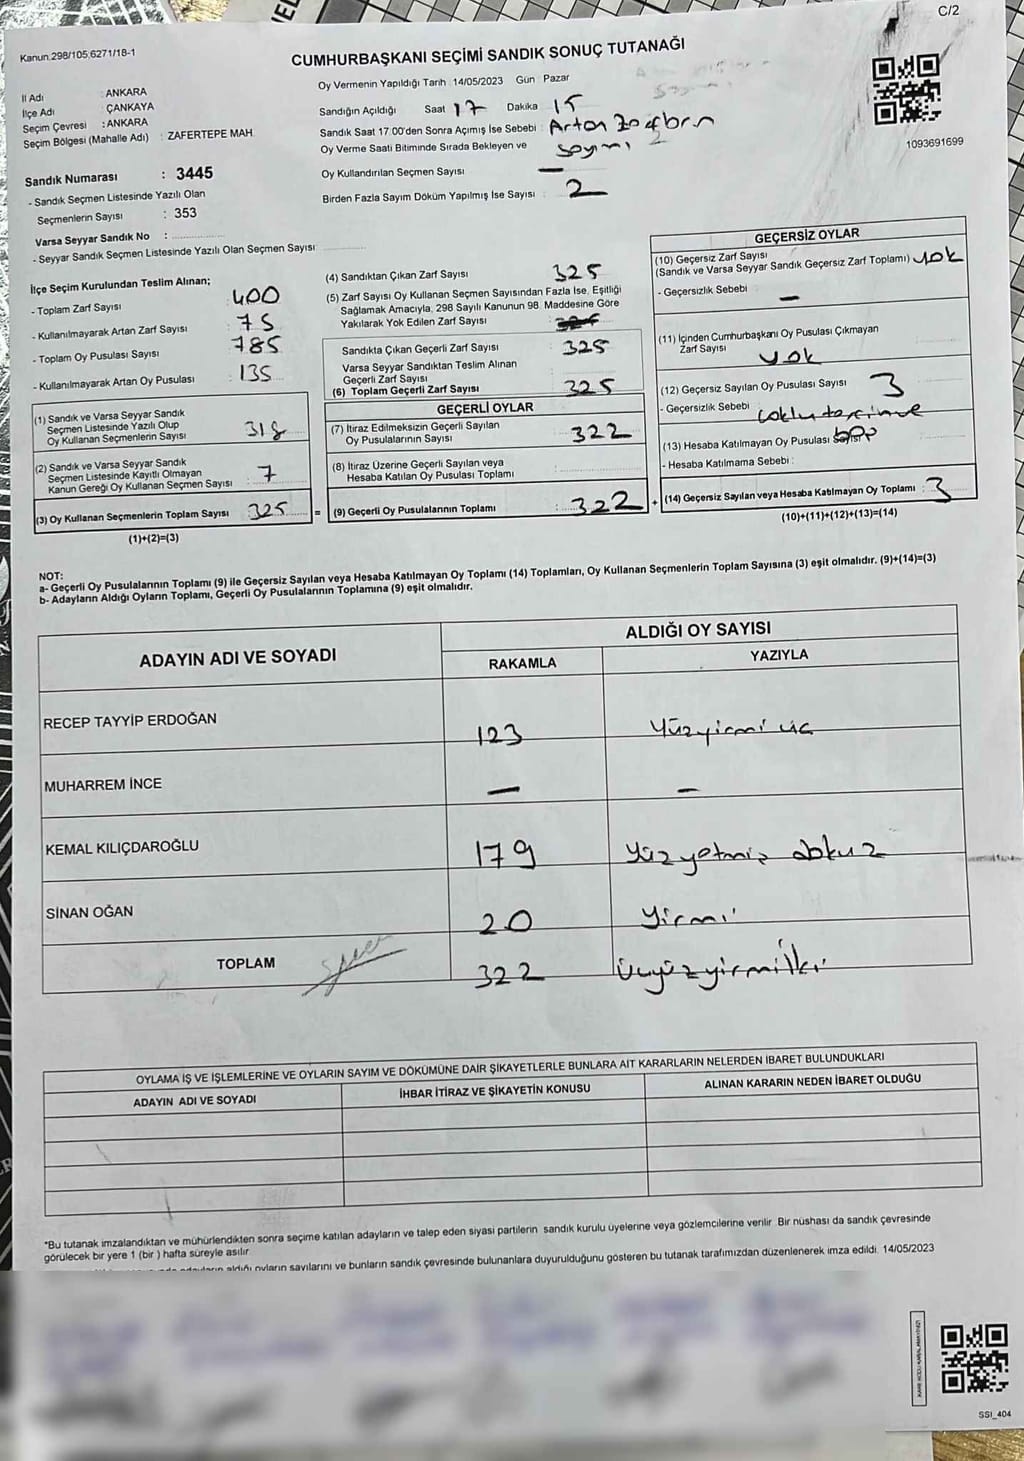 C/2
Kanun.298/105,6271/18-1
CUMHURBAŞKANI SEÇİMİ SANDIK SONUÇ TUTANAĞI
İl Adı : ANKARA
İlçe Adı : ÇANKAYA
Seçim Çevresi : ANKARA
Seçim Bölgesi (Mahalle Adı) : ZAFERTEPE MAH.
Sandık Numarası : 3445
- Sandık Seçmen Listesinde Yazılı Olan
Seçmenlerin Sayısı : 353
Varsa Seyyar Sandık No :
- Seyyar Sandık Seçmen Listesinde Yazılı Olan Seçmen Sayısı:
Oy Vermenin Yapıldığı Tarih : 14/05/2023 Gün : Pazar
Sandığın Açıldığı Saat 17 Dakika 15
Sandık Saat 17:00'den Sonra Açımış İse Sebebi : Artan zarfların
Oy Verme Saati Bitiminde Sırada Bekleyen ve sayımı
Oy Kullandırılan Seçmen Sayısı —
Birden Fazla Sayım Döküm Yapılmış İse Sayısı : 2
1093691699
İlçe Seçim Kurulundan Teslim Alınan;
- Toplam Zarf Sayısı : 400
- Kullanılmayarak Artan Zarf Sayısı : 75
- Toplam Oy Pusulası Sayısı : 785
- Kullanılmayarak Artan Oy Pusulası : 135
(1) Sandık ve Varsa Seyyar Sandık
Seçmen Listesinde Yazılı Olup
Oy Kullanan Seçmenlerin Sayısı : 318
(2) Sandık ve Varsa Seyyar Sandık
Seçmen Listesinde Kayıtlı Olmayan
Kanun Gereği Oy Kullanan Seçmen Sayısı : 7
(3) Oy Kullanan Seçmenlerin Toplam Sayısı : 325 =
(1)+(2)=(3)
(4) Sandıktan Çıkan Zarf Sayısı 325
(5) Zarf Sayısı Oy Kullanan Seçmen Sayısından Fazla İse, Eşitliği
Sağlamak Amacıyla, 298 Sayılı Kanunun 98. Maddesine Göre
Yakılarak Yok Edilen Zarf Sayısı :
Sandıkta Çıkan Geçerli Zarf Sayısı : 325
Varsa Seyyar Sandıktan Teslim Alınan
Geçerli Zarf Sayısı :
(6) Toplam Geçerli Zarf Sayısı : 325
GEÇERLİ OYLAR
(7) İtiraz Edilmeksizin Geçerli Sayılan
Oy Pusulalarının Sayısı : 322
(8) İtiraz Üzerine Geçerli Sayılan veya
Hesaba Katılan Oy Pusulası Toplamı :
(9) Geçerli Oy Pusulalarının Toplamı : 322 +
GEÇERSİZ OYLAR
(10) Geçersiz Zarf Sayısı
(Sandık ve Varsa Seyyar Sandık Geçersiz Zarf Toplamı) yok
- Geçersizlik Sebebi : —
(11) İçinden Cumhurbaşkanı Oy Pusulası Çıkmayan
Zarf Sayısı : yok
(12) Geçersiz Sayılan Oy Pusulası Sayısı : 3
- Geçersizlik Sebebi : çoklu tercihve
(13) Hesaba Katılmayan Oy Pusulası Sayısı
- Hesaba Katılmama Sebebi :
(14) Geçersiz Sayılan veya Hesaba Katılmayan Oy Toplamı : 3
(10)+(11)+(12)+(13)=(14)
NOT:
a- Geçerli Oy Pusulalarının Toplamı (9) ile Geçersiz Sayılan veya Hesaba Katılmayan Oy Toplamı (14) Toplamları, Oy Kullanan Seçmenlerin Toplam Sayısına (3) eşit olmalıdır. (9)+(14)=(3)
b- Adayların Aldığı Oyların Toplamı, Geçerli Oy Pusulalarının Toplamına (9) eşit olmalıdır.
ADAYIN ADI VE SOYADI ALDIĞI OY SAYISI
RAKAMLA YAZIYLA
RECEP TAYYİP ERDOĞAN 123 Yüzyirmi üç
MUHARREM İNCE — —
KEMAL KILIÇDAROĞLU 179 Yüzyetmiş dokuz
SİNAN OĞAN 20 Yirmi
TOPLAM 322 Üçyüzyirmiiki
OYLAMA İŞ VE İŞLEMLERİNE VE OYLARIN SAYIM VE DÖKÜMÜNE DAİR ŞİKAYETLERLE BUNLARA AİT KARARLARIN NELERDEN İBARET BULUNDUKLARI
ADAYIN ADI VE SOYADI İHBAR İTİRAZ VE ŞİKAYETİN KONUSU ALINAN KARARIN NEDEN İBARET OLDUĞU
*Bu tutanak imzalandıktan ve mühürlendikten sonra seçime katılan adayların ve talep eden siyasi partilerin sandık kurulu üyelerine veya gözlemcilerine verilir. Bir nüshası da sandık çevresinde
görülecek bir yere 1 (bir) hafta süreyle asılır.
adayların aldığı oyların sayılarını ve bunların sandık çevresinde bulunanlara duyurulduğunu gösteren bu tutanak tarafımızdan düzenlenerek imza edildi. 14/05/2023
SSI_404